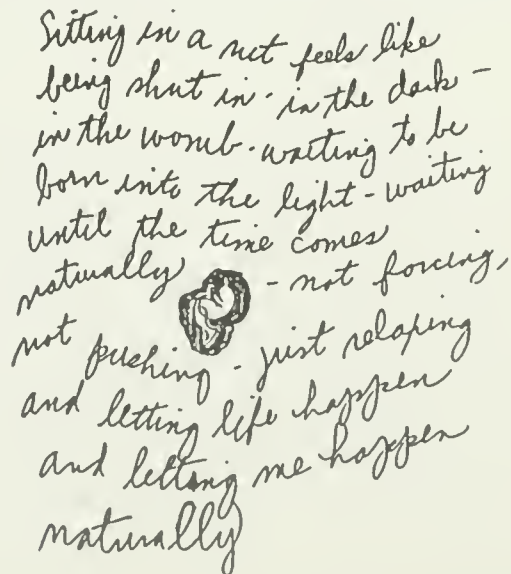 Sitting in a nut feels like
being shut in - in the dark -
in the womb - waiting to be
born into the light - waiting
until the time comes
naturally - not forcing,
not pushing - just relaxing
and letting life happen
and letting me happen
naturally